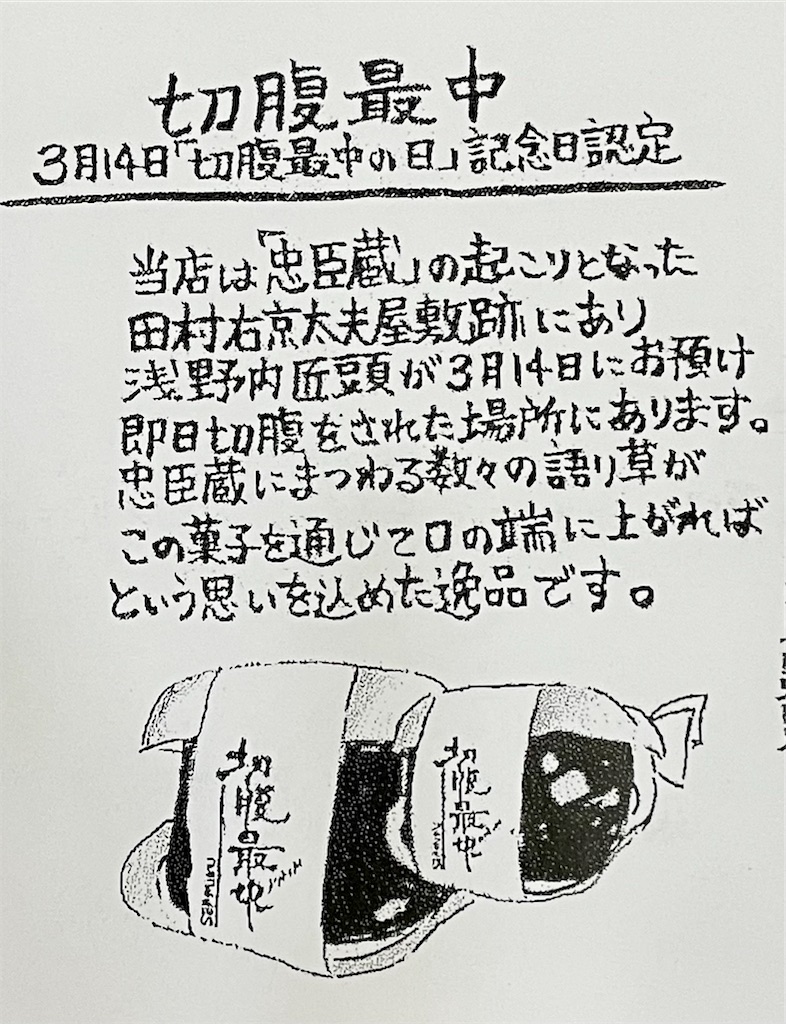 切腹最中
3月14日「切腹最中の日」記念日認定
当店は「忠臣蔵」の起こりとなった
田村右京太夫屋敷跡にあり
浅野内匠頭が3月14日にお預け
即日切腹をされた場所にあります。
忠臣蔵にまつわる数々の語り草が
この菓子を通じて口の端に上がれば
という思いを込めた逸品です。
切腹最中
切腹最中